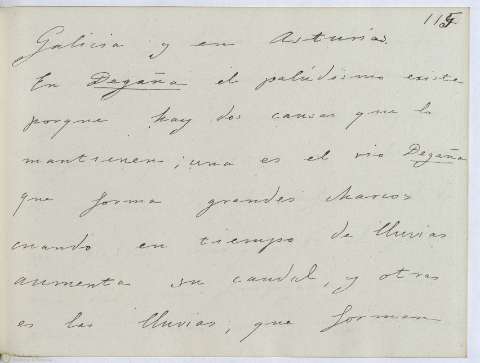 115
Galicia y en Asturias.
En Degaña el paludismo existe
porque hay dos causas que lo
mantienen; una es el rio Degaña
que forma grandes charcos
cuando en tiempo de lluvias
aumenta su caudal, y otras
es las lluvias, que forman